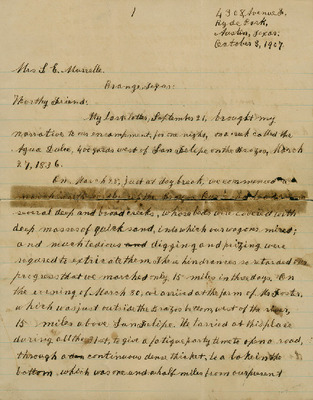 1
4308, Avenue D,
Hyde Park,
Austin, Texas.
October 8, 1907.
Mrs L. C. Murrelle.
Orange, Texas:
Worthy Friend:
My last letter, September 21, brought my
narrative to our encampment, for one night, on a creek called the
Agua Dulce, 400 yards west of San Felipe on the Brazos, March
27, 1836.
On March 28, just at day break, we commenced
several deep and broad creeks, whose beds were covered with
deep masses of quick sand, in which our wagons mired;
and much tedious digging and prizing were
required to extricate them. These hindrances so retarded the
progress that we marched only 15 miles in three days. On
the evening of March 30, we arrived at the farm of Mr Foster,
which was just outside the Brazos bottom, west of the river,
15 miles above San Felipe. We tarried at this place
during all the 31st, to give a fatigue party time to open a road,
through a continuous dense thicket, to a lake in the
bottom, which was one and a half miles from our present